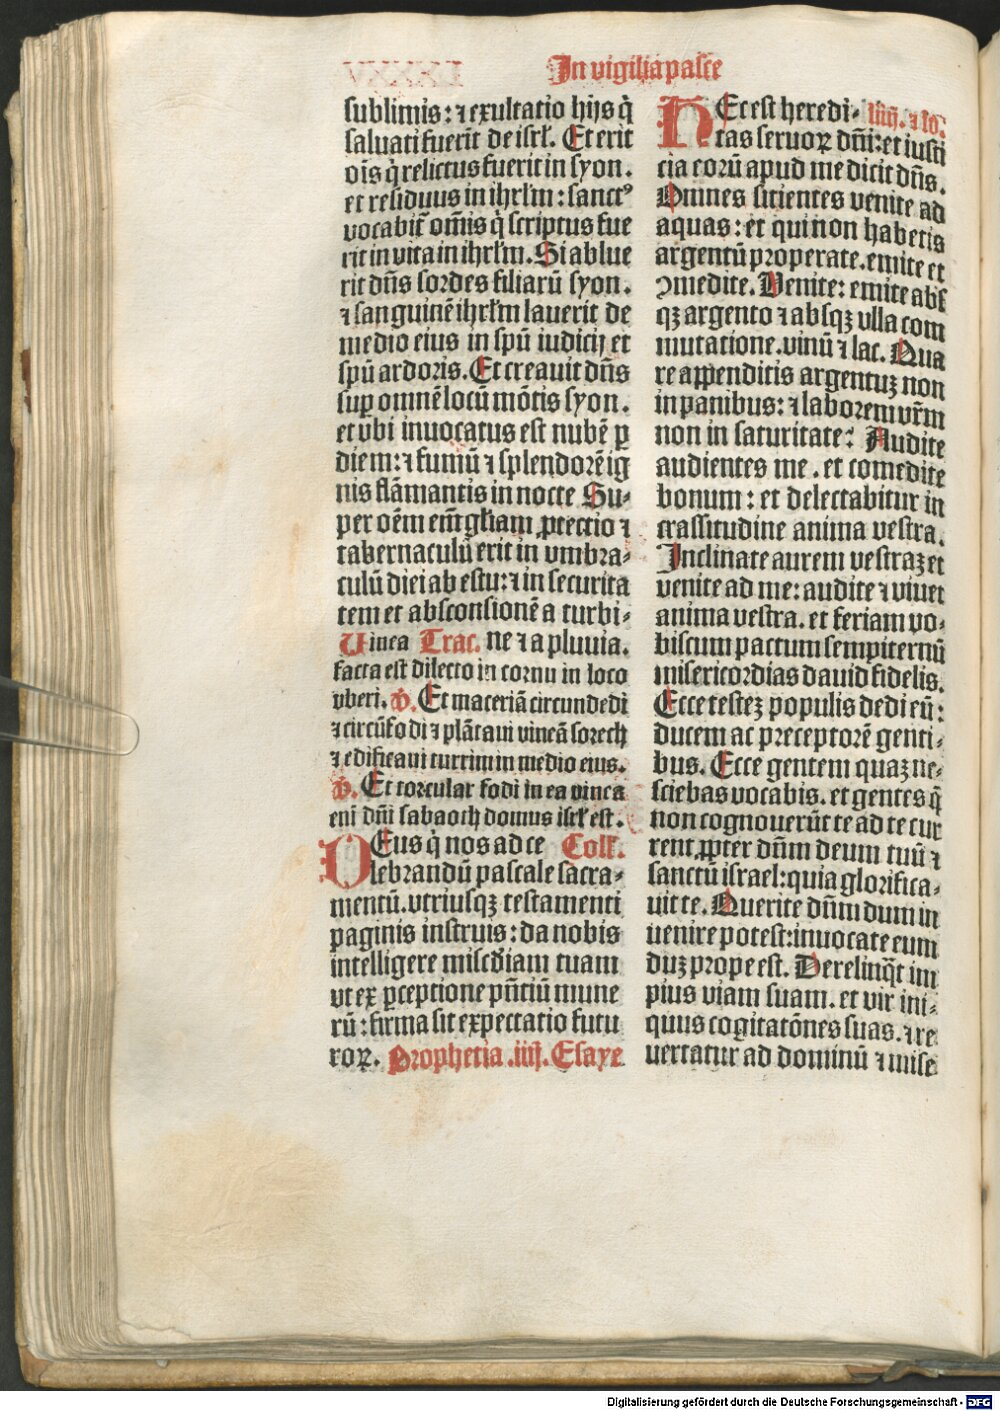 In vigilia pasce
sublimis: ⁊ exultatio hijs q̃
saluati fuerĩt de isrł. Et erit
oĩs q̃ relictus fuerit in syon.
et residuus in ihrłm: sanctꝰ
vocabit᷑ oṁis q̃ scriptus fue
rit in vita in ihrłm. Si ablue
rit dñs sordes filiarũ syon.
⁊ sanguinẽ ihrłm lauerit de
medio eius in spũ iudicij et
spũ ardoris. Et creauit dñs
suꝑ omnẽ locũ mõtis syon.
et vbi inuocatus est nubẽ ꝑ
diem: ⁊ fumũ ⁊ splendorẽ ig
nis flãmantis in nocte Su⸗
per oẽm em̃ głiam ꝓtectio ⁊
tabernaculũ erit in vmbra⸗
culũ diei ab estu: ⁊ in securita
tem et absconsionẽ a turbi⸗
ne ⁊ a pluuia.
Trac. Uinea
facta est dilecto in cornu in loco
vberi. ꝟ. Et maceriã circundedi
⁊ circũfodi ⁊ plãtaui vineã sorech
⁊ edificaui turrim in medio eius.
ꝟ. Et torcular fodi in ea vinea
eni᷑ dñi sabaoth domus isrł est.
DEus q̃ nos ad ce Coll.
lebrandũ pascale sacra⸗
mentũ. vtriusqꝫ testamenti
paginis instruis: da nobis
intelligere misc̃diam tuam
vt ex ꝑceptione pñtiũ mune
rũ: firma sit expectatio futu
roꝝ. Prophetia .iiij. Esaye
HEc est heredi⸗ liiij. ⁊ lv.
tas seruoꝝ dñi: et iusti
cia eorũ apud me dicit dñs.
Omnes sitientes venite ad
aquas: et qui non habetis
argentũ properate. emite et
ꝯmedite. Venite: emite abs
qꝫ argento ⁊ absqꝫ vlla com
mutatione. vinũ ⁊ lac. Qua
re appenditis argentuꝫ non
in panibus: ⁊ laborem vr̃m
non in saturitate: Audite
audientes me. et comedite
bonum: et delectabitur in
crassitudine anima vestra.
Inclinate aurem vestraꝫ et
venite ad me: audite ⁊ viuet
anima vestra. et feriam vo⸗
biscum pactum sempiternũ
misericordias dauid fidelis.
Ecce testeꝫ populis dedi eũ:
ducem ac preceptorẽ genti⸗
bus. Ecce gentem quaꝫ ne⸗
sciebas vocabis. et gentes q̃
non cognouerũt te ad te cur
rent ꝓpter dñm deum tuũ ⁊
sanctũ israel: quia glorifica⸗
uit te. Querite dñm dum in
uenire potest: inuocate eum
duꝫ prope est. Derelinq̃t im
pius viam suam. et vir ini⸗
quus cogitatõnes suas. ⁊ re
uertatur ad dominũ ⁊ mise
Digitalisierung gefördert durch die Deutsche Forschungsgemeinschaft - DFG